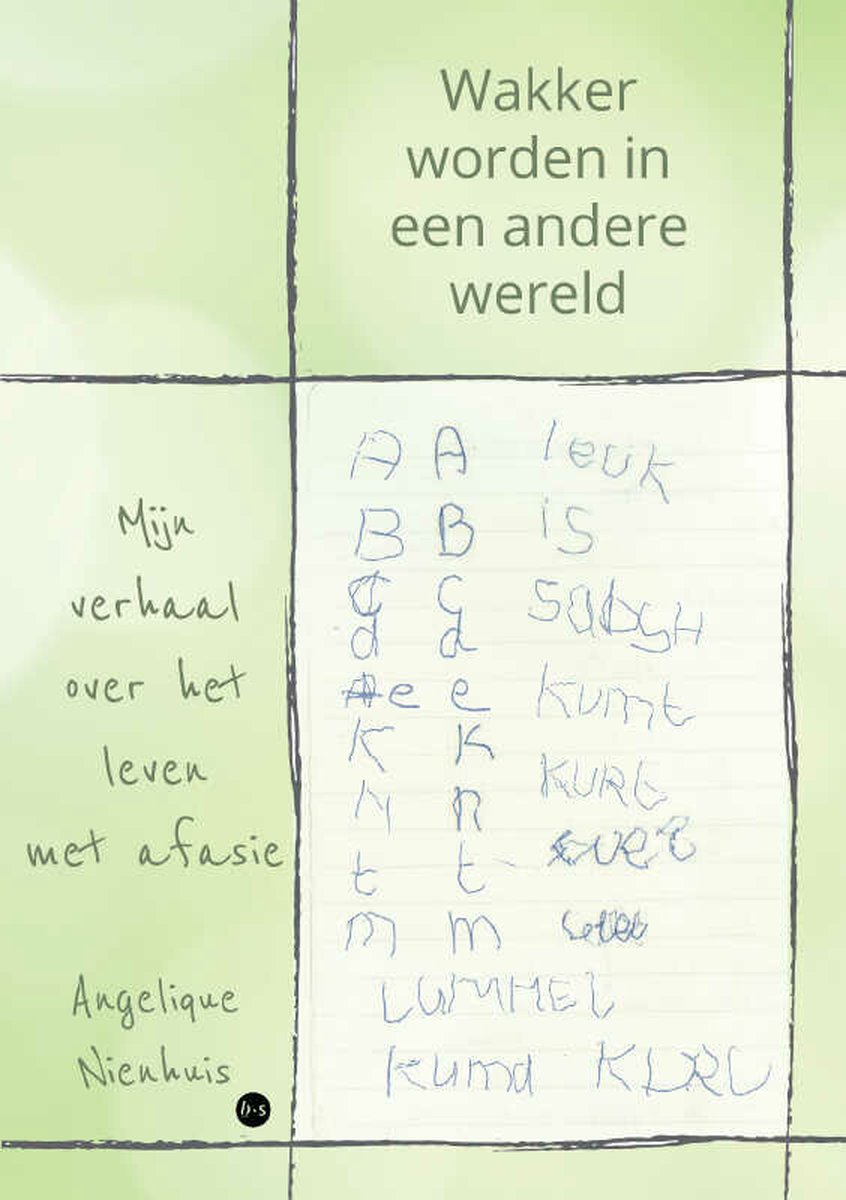 Wakker
worden in
een andere
wereld
Mijn
verhaal
over het
leven
met afasie
Angelique
Nienhuis
b.s
A A leuk
B B is
C C
d d
e e kumt
K K
N n KURt
t t
m m
LUMMEL
Kumd